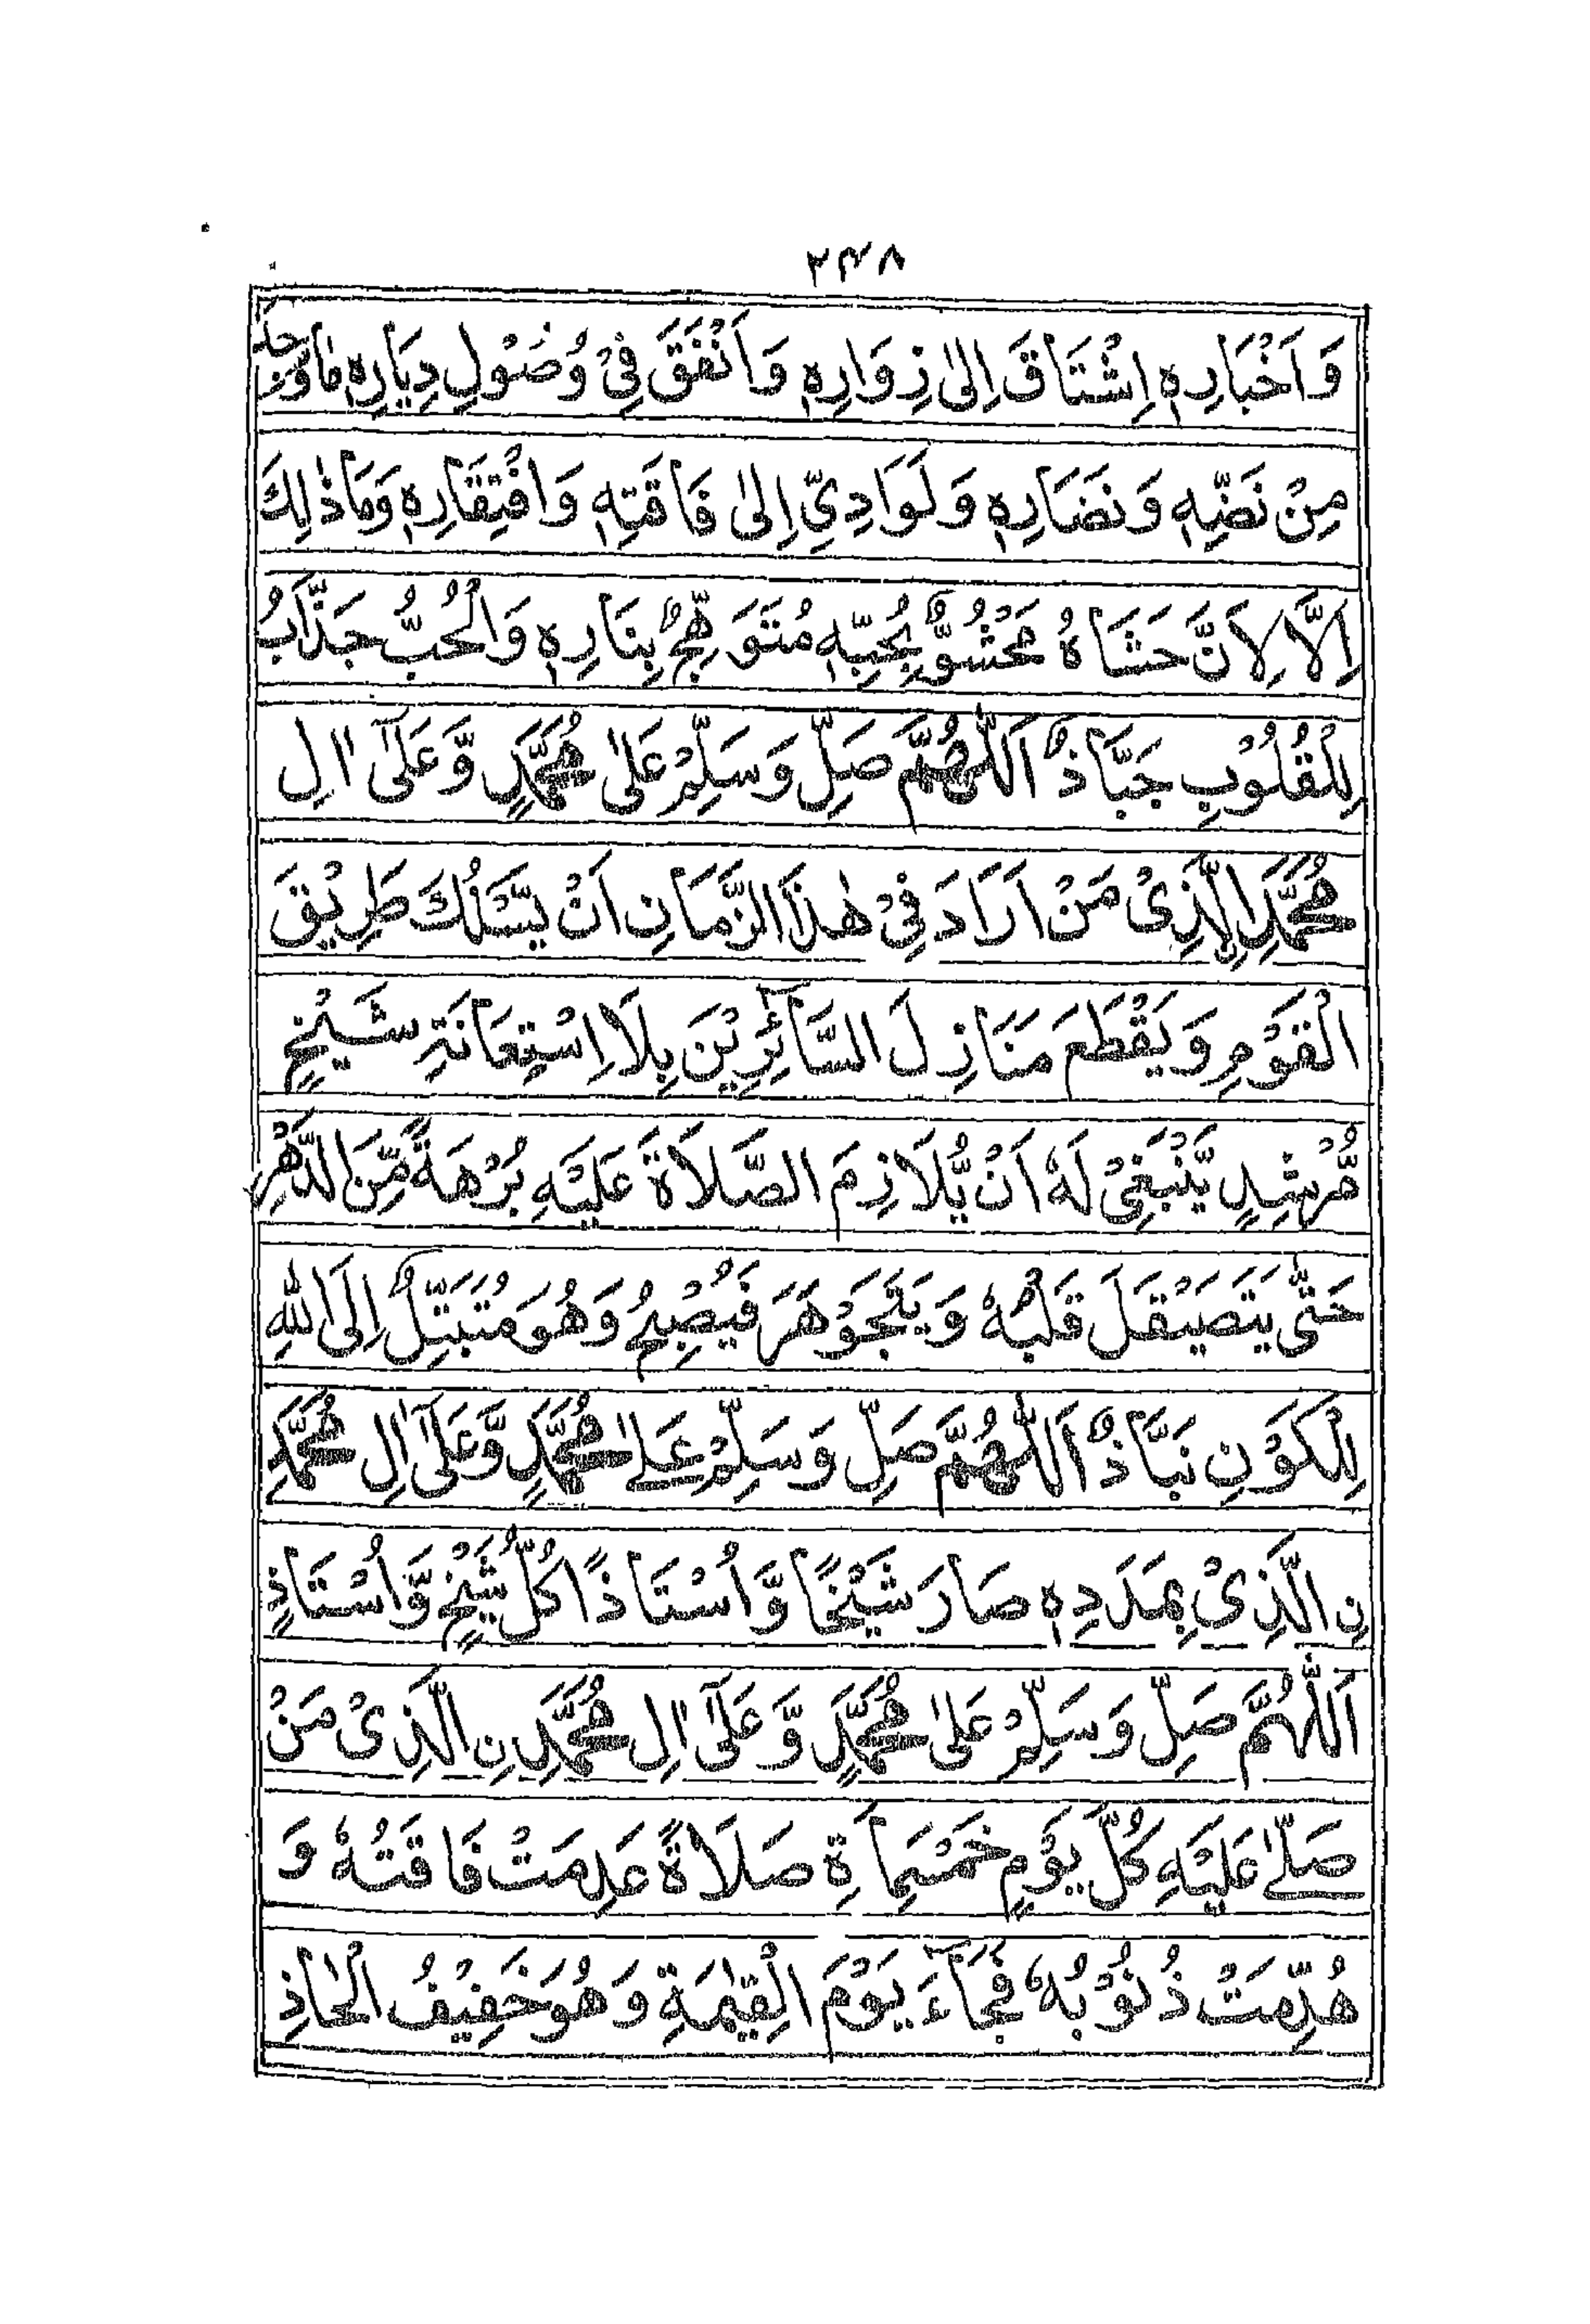 ۲۴۸
وَاَخْبَارِهٖ اِشْتَاقَ اِلىٰ زِوَارِهٖ وَاَنْفَقَ فِىْ وُصُوْلِ دِيَارِهٖ مَا وَجَدَ
مِنْ نَضِّهٖ وَنَضَارِهٖ وَلَوَادِىّ اِلىٰ فَاقَتِهٖ وَافْتِقَارِهٖ وَمَا ذٰلِكَ
اِلَّا لِاَنَّ حَشَاهُ مَحْشُوٌّ بِحُبِّهٖ مُتَوَهِّجٌ بِنَارِهٖ وَالْحُبُّ جَذَّابُ
لِلْقُلُوْبِ جَبَّاذٌ اَللّٰهُمَّ صَلِّ وَسَلِّمْ عَلىٰ مُحَمَّدٍ وَّعَلىٰٓ اٰلِ
مُحَمَّدِ اِلَّذِىْ مَنْ اَرَادَ فِىْ هٰذَا الزَّمَانِ اَنْ يَّسْلُكَ طَرِيْقَ
الْقَوْمِ وَيَقْطَعَ مَنَازِلَ السَّآئِرِيْنَ بِلَا اِسْتِعَانَةِ شَيْخٍ
مُّرْشِدٍ يَّنْبَغِىْ لَهٗ اَنْ يُّلَازِمَ الصَّلَاةَ عَلَيْهِ بُرْهَةً مِّنَ الدَّهْرِ
حَتّٰى يَتَصَيْقَلَ قَلْبُهٗ وَيَتَجَوْهَرَ فَيُصْبِحُ وَهُوَ مُتَبَتِّلٌ اِلَى اللهِ
لِلْكَوْنِ نَبَّاذٌ اَللّٰهُمَّ صَلِّ وَسَلِّمْ عَلىٰ مُحَمَّدٍ وَّعَلىٰٓ اٰلِ مُحَمَّدِ
نِ الَّذِىْ بِمَدَدِهٖ صَارَ شَيْخًا وَّاُسْتَاذًا كُلُّ شَيْخٍ وَّاُسْتَاذٍ
اَللّٰهُمَّ صَلِّ وَسَلِّمْ عَلىٰ مُحَمَّدٍ وَّعَلىٰٓ اٰلِ مُحَمَّدِ نِ الَّذِىْ مَنْ
صَلّٰى عَلَيْهِ كُلَّ يَوْمٍ خَمْسَمِأَةِ صَلَاةً عَدِمَتْ فَاقَتُهٗ وَ
هُدِّمَتْ ذُنُوْبُهٗ فَجَآءَ يَوْمَ الْقِيٰمَةِ وَهُوَ خَفِيْفُ الْحَاذِ